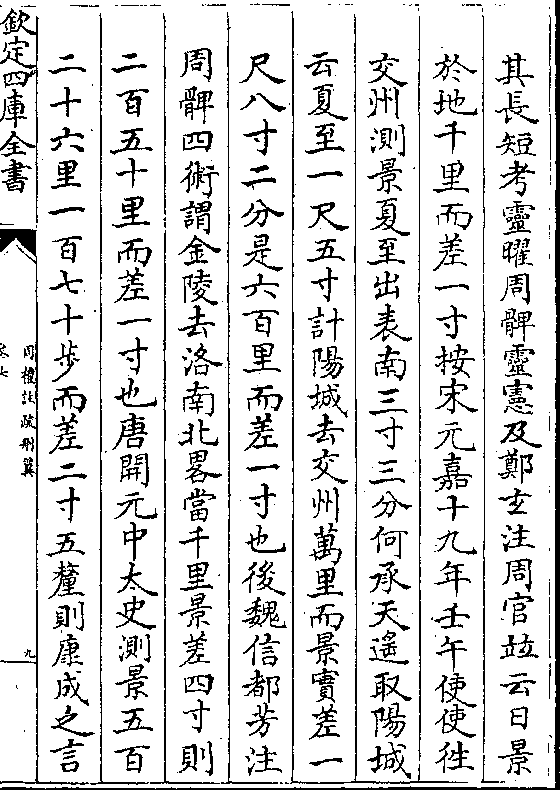 其長短考靈曜周髀靈憲及鄭玄注周官竝云日景
於地千里而差一寸按宋元嘉十九年壬午使使往
交州測景夏至出表南三寸三分何承天遥取陽城
云夏至一尺五寸計陽城去交州萬里而景實差一
尺八寸二分是六百里而差一寸也後魏信都芳注
周髀四術謂金陵去洛南北畧當千里景差四寸則
二百五十里而差一寸也唐開元中太史測景五百
二十六里一百七十步而差二寸五釐則康成之言
欽定四庫全書
周禮註疏刪翼
卷七
九